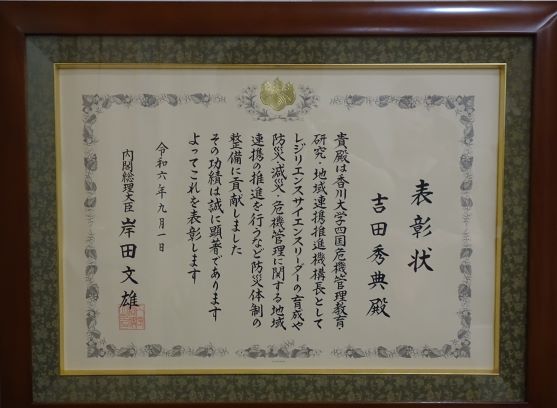 表彰状
吉田秀典殿
貴殿は香川大学四国危機管理教育・
研究・地域連携推進機構長として
レジリエンスサイエンスリーダーの育成や
防災・減災・危機管理に関する地域
連携の推進を行うなど防災体制の
整備に貢献しました
その功績は誠に顕著であります
よってこれを表彰します
令和六年九月一日
内閣総理大臣 岸田文雄